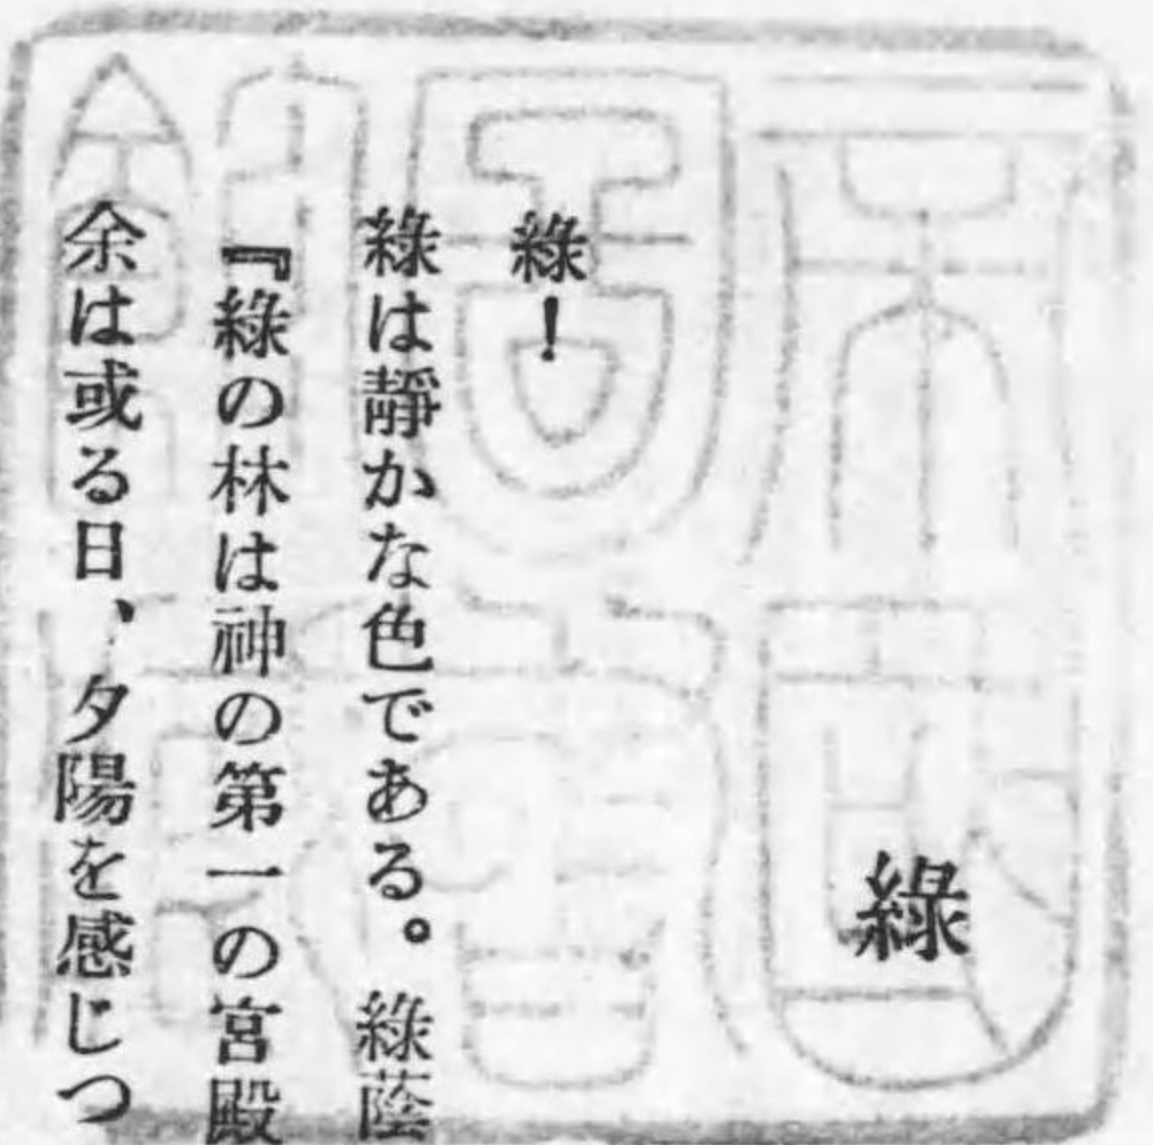 綠
綠！
綠は靜かな色である。綠蔭
『綠の林は神の第一の宮殿
余は或る日、夕陽を感じつ
帝國圖書館藏